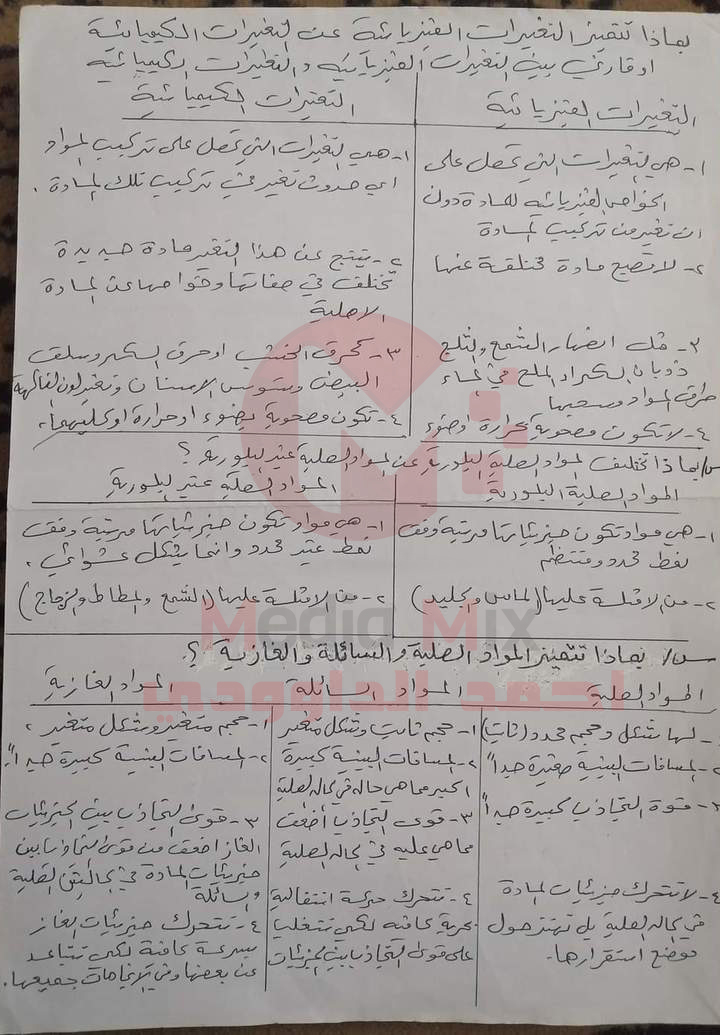 بماذا تتميز التغيرات الفيزيائية عن التغيرات الكيميائية
او قارن بين التغيرات الفيزيائية والتغيرات الكيميائية
التغيرات الفيزيائية
١- هي التغيرات التي تحصل على
الخواص الفيزيائية للمادة دون
ان تغير من تركيب المادة
٢- لا تصبح مادة مختلفة عنها
٣- مثل انصهار الشمع والثلج
ذوبان السكر او الملح في الماء
طرق المواد وسحبها
٤- لا تكون مصحوبة بحرارة او ضوء
التغيرات الكيميائية
١- هي التغيرات التي تحصل على تركيب المواد
اي حدوث تغير في تركيب تلك المادة .
٢- ينتج عن هذا التغير مادة جديدة
تختلف في صفاتها وخواصها عن المادة
الاصلية
٣- كحرق الخشب او حرق السكر وسلق
البيض وتسوس الاسنان وتغير لون الفاكهة
٤- تكون مصحوبة بضوء او حرارة او كليهما .
س/ بماذا تختلف المواد الصلبة البلورية عن المواد الصلبة غير البلورية ؟
المواد الصلبة البلورية
١- هي مواد تكون جزيئاتها مرتبة وفق
نمط محدد ومنتظم
٢- من الامثلة عليها (الماس والجليد)
المواد الصلبة غير البلورية
١- هي مواد تكون جزيئاتها مرتبة وفق
نمط غير محدد وانما بشكل عشوائي .
٢- من الامثلة عليها (الشمع والمطاط والزجاج)
Media Mix
س/ بماذا تتميز المواد الصلبة والسائلة والغازية ؟.
احمد الداوودي
المواد الصلبة
١- لها شكل وحجم محدد (ثابت)
٢- المسافات البينية صغيرة جداً
٣- قوة التجاذب كبيرة جداً
٤- لا تتحرك جزيئات المادة
في الحالة الصلبة بل تهتز حول
موضع استقرارها.
المواد السائلة
١- حجم ثابت وشكل متغير
٢- المسافات البينية كبيرة
اكبر مما هي حاله في الحالة الصلبة
٣- قوى التجاذب أضعف
مما هي عليه في الحالة الصلبة
٤- تتحرك حركة انتقالية
بحرية كافيه لكي تتغلب
على قوى التجاذب بين الجزيئات
المواد الغازية
١- حجم متغير وشكل متغير .
٢- المسافات البينية كبيرة جداً.
٣- قوى التجاذب بين الجزيئات
الغاز اضعف من قوى التجاذب بين
جزيئات المادة في الحالتين الصلبة
والسائلة
٤- تتحرك جزيئات الغاز
بسرعة كافية لكي تتباعد
عن بعضها وفي الاتجاهات جميعها.